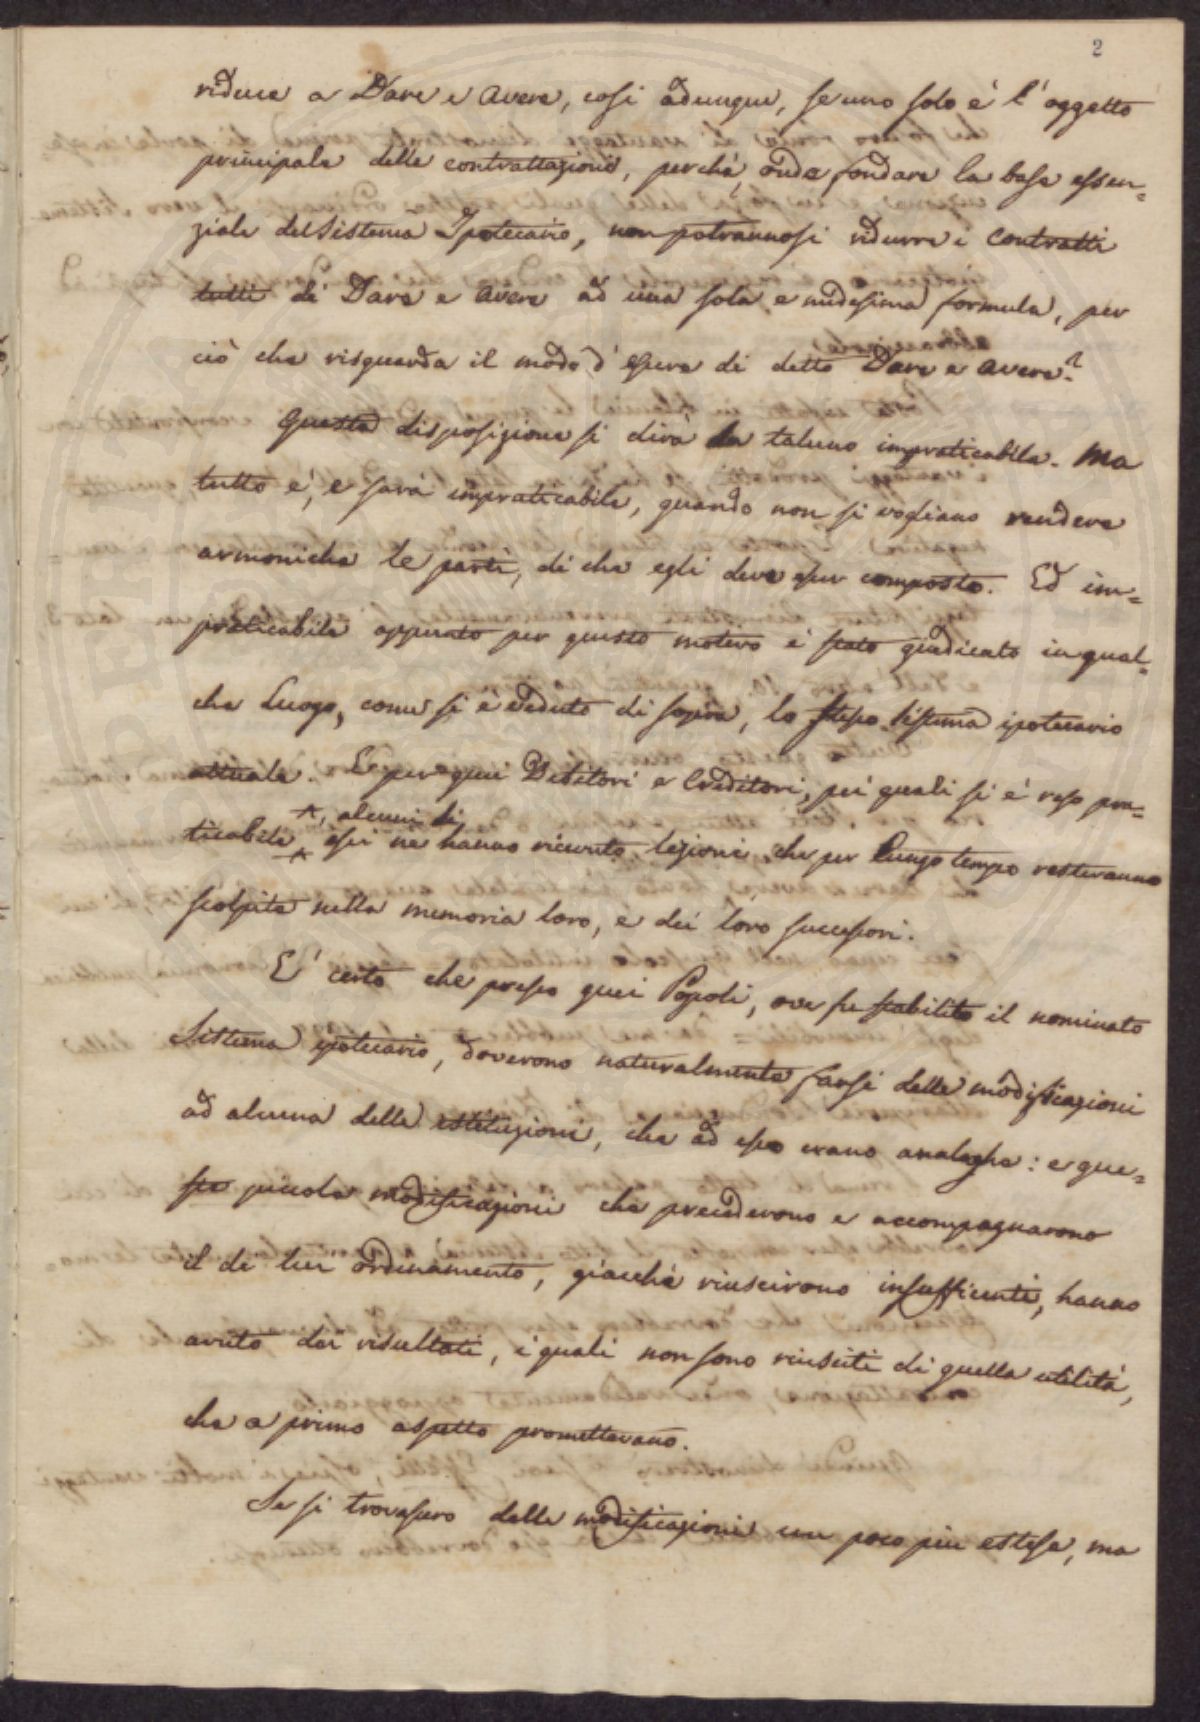 2
riduce a Dare e avere, così adunque, se uno solo è l'oggetto
principale delle contrattazioni, perchè, onde fondare la base essen=
ziale del Sistema Ipotecario, non potrannosi ridurre i contratti
tutti di Dare e avere ad una sola e medesima formula, per
ciò che risguarda il modo d'essere di detto Dare e avere?
Questa disposizione si dirà da taluno impraticabile. Ma
tutto è, e sarà impraticabile, quando non si vogliano rendere
armoniche le parti, di che egli deve esser composto. Ed im=
praticabile appunto per questo motivo è stato giudicato in qual=
che Luogo, come si è veduto di sopra, lo stesso Sistema ipotecario
attuale. E per quei Debitori e Creditori, pei quali si è reso pra=
, alcuni di
ticabile essi ne hanno ricevuto lezioni, che per lungo tempo resteranno
scolpite nella memoria loro, e dei loro successori.
E' certo che presso quei Popoli, ove fu stabilito il nominato
Sistema ipotecario, doverono naturalmente farsi delle modificazioni
ad alcuna delle istituzioni, che ad esso erano analoghe: e que=
ste piccole modificazioni che precederono e accompagnarono
il di lui ordinamento, giacchè riuscirono insufficienti, hanno
avuto dei risultati, i quali non sono riusciti di quella utilità,
che a primo aspetto promettevano.
Se si trovassero delle modificazioni un poco più estese, ma